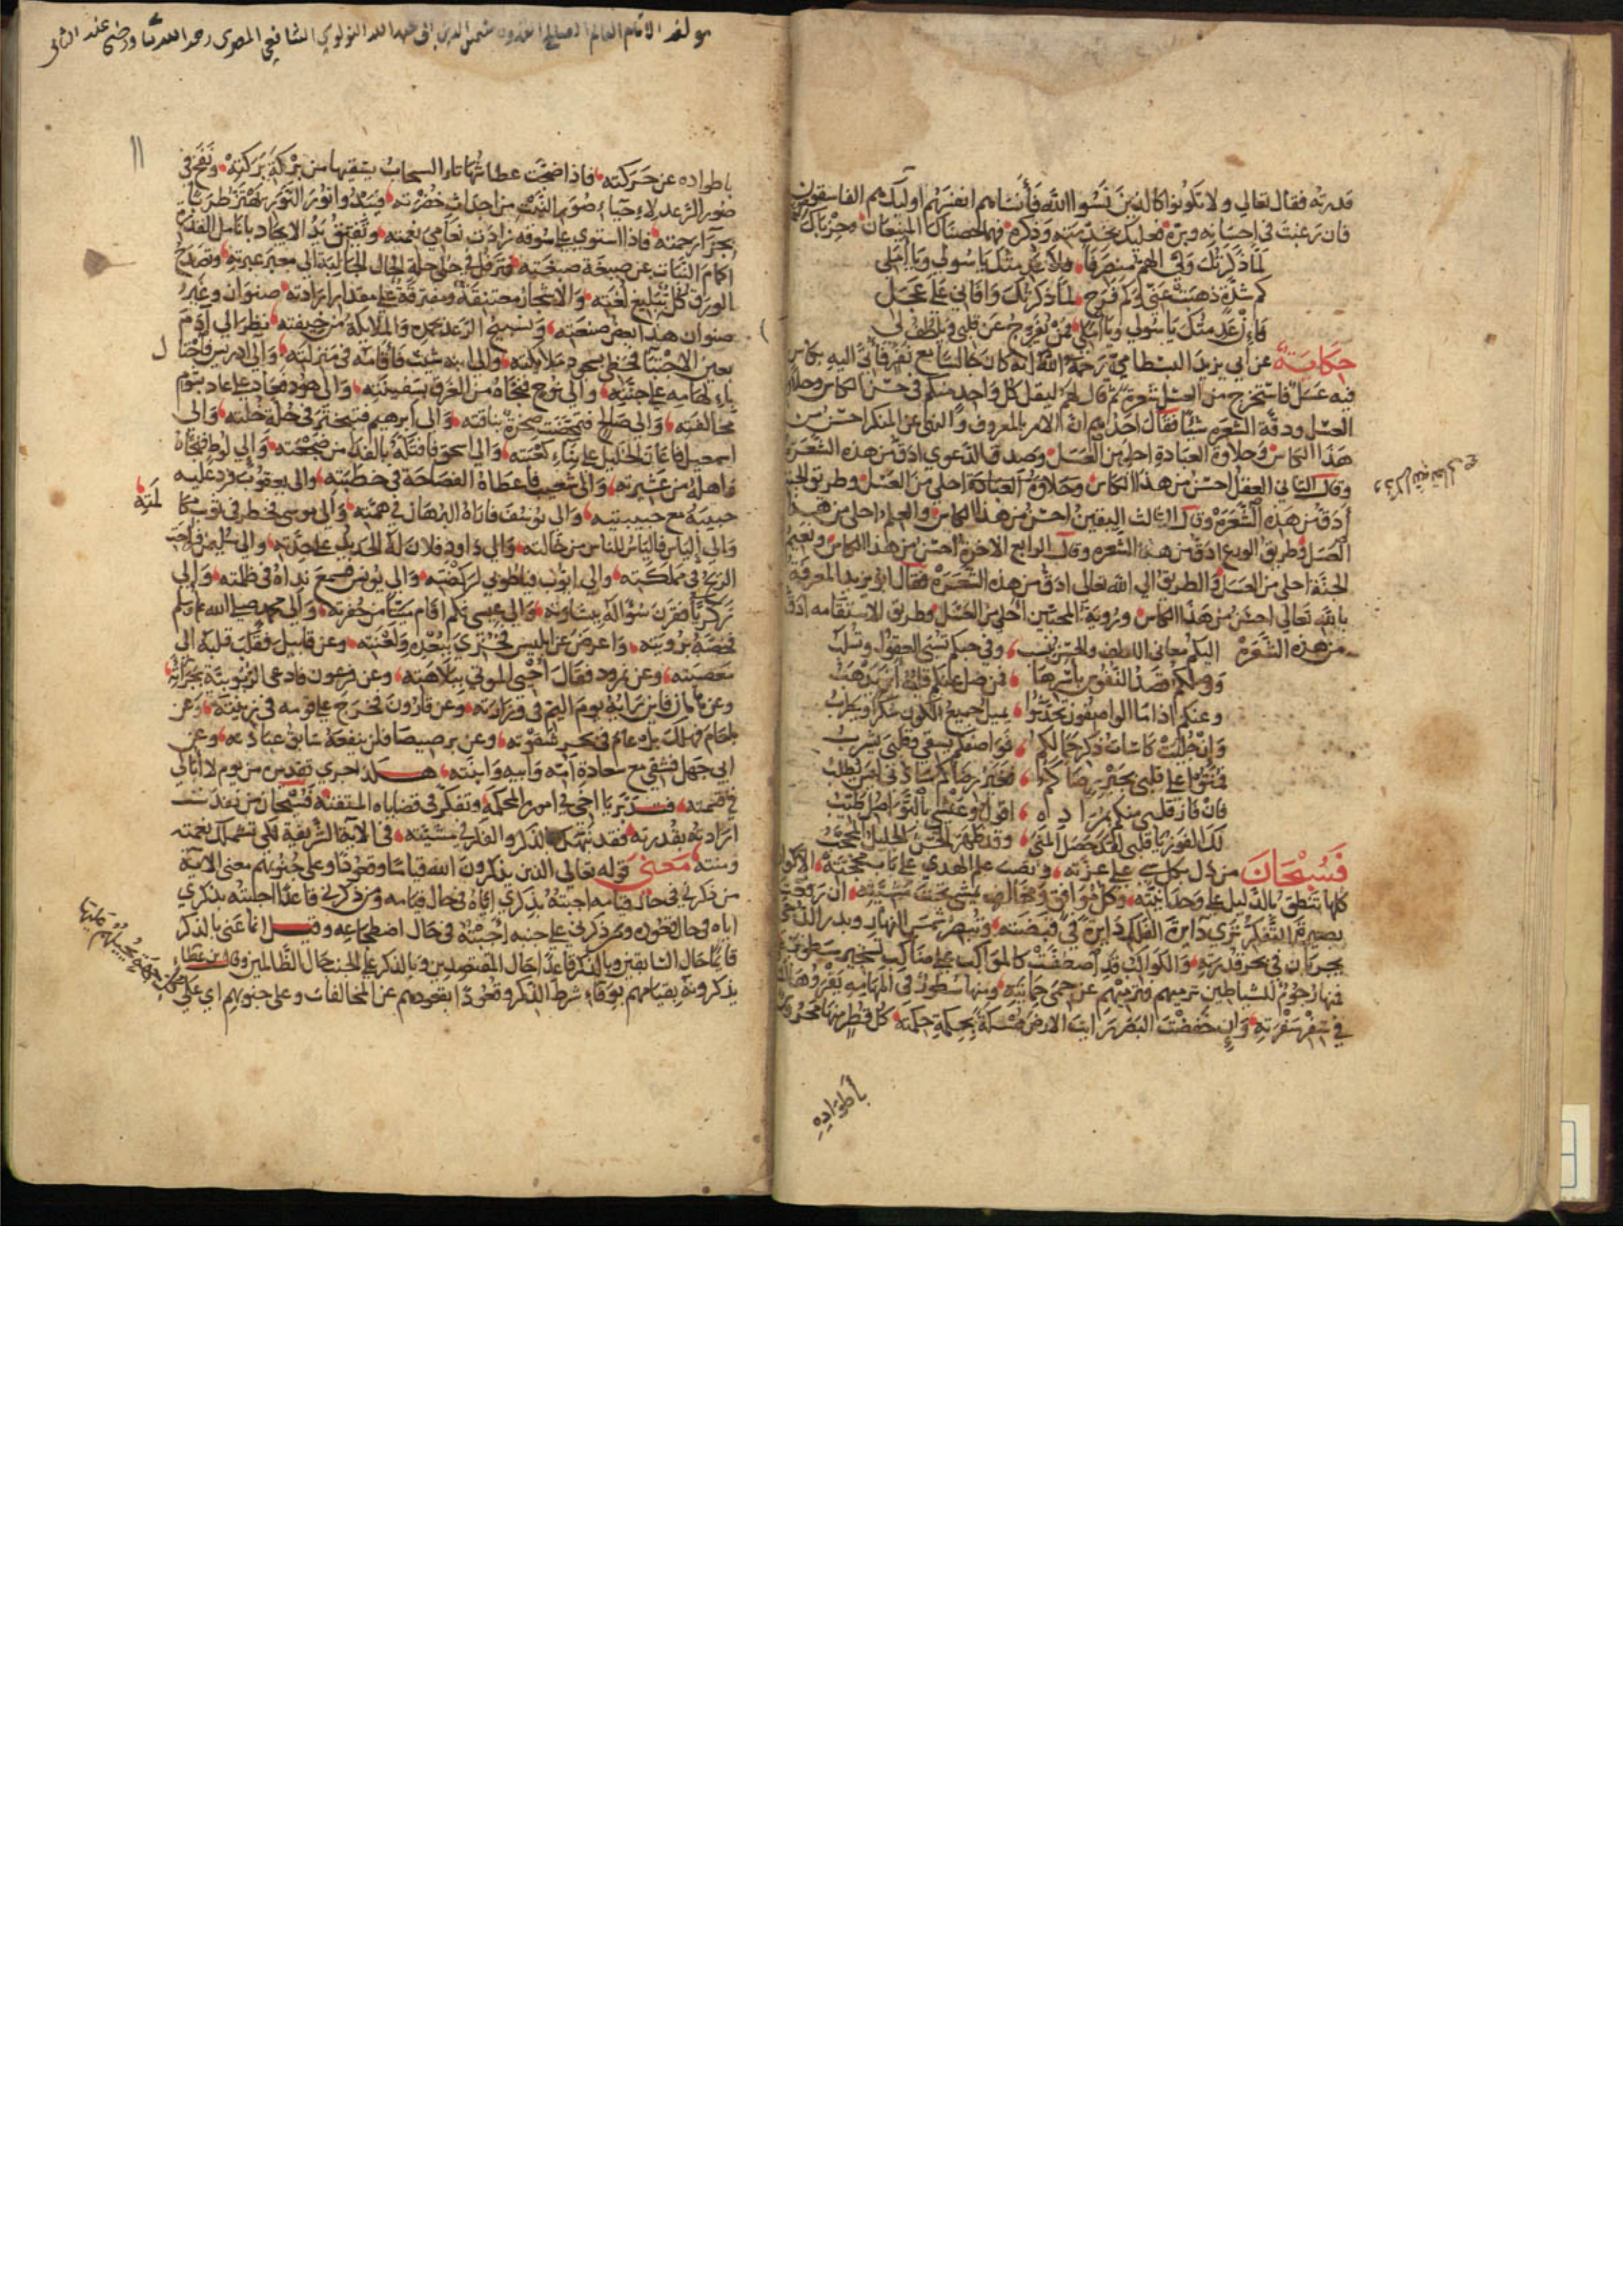 قدرته فقال تعالي ولا تكونوا كالذين نسوا الله فأنساهم انفسهم اوليك هم الفاسقون
فان رغبت في احسانه وبره فعليك بخدمته وذكره فهما الحصنان المنيعان
لما ذكرتك ولي الهم منصرفا ولا عدمتك يا سولي ويا أملي
كم شدة ذهبت عني وكم فرج لما ذكرتك وافاني علي عجل
فمن يفرج عن قلبي ويلطف لي
حكاية عن ابي يزيد البسطامي رحمة الله انه كان جالسا مع نفر فأتي اليه بكاس
فيه عسل فاستخرج من العسل شعرة ثم قال لهم ليقل كل واحد منكم في حسن الكاس وحلاوة
العسل ودقة الشعره شيا فقال احدهم ان الامر بالمعروف والنهي عن المنكر احسن من
هذا الكاس وحلاوة العبادة احلي من العسل وصدق الدعوي ادق من هذه الشعرة
وقال الثاني العقل احسن من هذا الكاس وحلاوة العبادة احلي من العسل وطريق الجنة
أدق من هذه الشعره وقال الثالث اليقين احسن من هذا الكاس والعلم احلي من هذا
العسل وطريق الورع ادق من هذه الشعره وقال الرابع الاخرة احسن من هذا الكاس ونعيم
الجنة احلي من العسل والطريق الي الله تعالي ادق من هذه الشعرة فقال ابو يزيد المعرفة
بالله تعالي احسن من هذا الكاس ورؤية المحبين احلي من العسل وطريق الاستقامه ادق
من هذه الشعره اليكم معاني اللطف والحسن تنسب وفي حبكم تسبي العقول وتسلب
ووصلكم قصد النفوس بأسرها
وعنكم اذا ما الواصفون تحدثوا يميل جميع الكون سكرا ويطرب
وان جليت كاسات ذكر جمالكم فواصفكم يسقي وقلبي يشرب
فمنوا علي قلبي بخير رضاكموا فخير رضاكم ساد ني اين يطلب
فان فاز قلبي منكم بمراده اقول وعيشي بالتواصل طيب
لك الفوز يا قلبي لقد حصل المني وقد ظهر الحسن الجليل المحجب
فسبحان من دل بكل شي علي عزته ونصب علم الهدي علي باب محجته الاكوان
كلها تنطق بالدليل علي وحدانيته وكل موافق ومخالف يمشي تحت مشيئته ان رفعت
بصيرة التفكر تري دايرة الفلك دايرة في قبضته وتبصر شمس النهار وبدر الدجي
يجريان في بحر قدرته والكواكب قد اصطفت كالمواكب علي مناكب تسخير سطوته
فمنها رجوم للشياطين ترميهم فترميهم عن حمي حمايته ومنها سطور في المهامه يقرؤها
في سفر سفرته وان خفضت البصر رايت الارض ممسكة بحكمة حكمته كل قطر منها محروس
بأطواده
مولفه الامام العالم شمس الدين ابي عبد الله الشافعي المصري رحمه الله
١١
باطواده عن حركته فاذا ضحت عطاشها تاه السحاب يسقيها من بركة بركته ونفخ في
صور الرعد لاحياء صور النبت من اجداث خفرته فيبدوا نور النور يهتز طربا
بجزا رحمته فاذا استوي علي سوقه زادت نعامي نعمته وتفتق يد الايجاد بانامل القدرة
أكمام النبات عن صبيغة صبغته
الورق كل بتبليغ لغته والاشجار معتنقة ومفترقة علي مقدار ارادته صنوان وغير
صنوان هذا بعض صنعته ويسبح الرعد بحمده والملايكة من خيفته نظر الي ادم
بعين الاجتبا فحظي بسجود ملايكته والي ابنه شيث فأقامه في منزلته والي ادريس فاحتال
بالهامه علي جنته والي نوح فنجاه من الغرق بسفينته والي هود فعاد علي عاد بشوم
مخالفته والي صالح فتمخضت صخرة بناقته والي ابرهيم فتبختر في حلة خلته والي
اسمعيل فاعان الخليل علي بناء كعبته والي اسحق فافتكه بالفدا من ضجعته والي لوط فنجاه
واهله من عشيرته والي شعيب فاعطاه الفصاحة في خطبته والي يعقوب فرد عليه
حبيبه مع حبيبتيه والي يوسف فاراه البرهان في همته والي موسي فخطر في ثوب مكالمته
والي الياس فالياس للناس من حالته والي داود فلان له الحديد علي حدته والي سليمن فراحت
الريح في مملكته والي ايوب فياطوبي لركضته والي يونس فسمع نداه في ظلمته والي
زكريا فقرن سؤاله ببشارته والي عيسي فكم اقام ميتا من حفرته والي محمد صلي الله عليه وسلم
فخصه برويته واعرض عن ابليس فخزي ببعده ولعنته وعن قابيل فقلب قلبه الي
معصيته وعن نمرود فقال أحيي الموتي ببلاهته وعن فرعون فادعي الربوبية بجرأته
وعن هامان فاين رايه يوم اليم في وزارته وعن قارون فخرج علي قومه في زينته وعن
بلعام فهلك بل وعام في بحر شقوته وعن برصيصا فلن ينفعه سابق عبادته وعن
ابي جهل فشقي مع سعادة أمه وابيه وابنته هكذا جري تقديس من يوم لا ابالي
في قسمته فتدبر يا اخي في امور المحكمة وتفكر في قضاياه المتقنة فسبحان من نفذت
ارادته بقدرته فقد نبهك الذكر والفكر في مشيئته في الاية الشريفة لكي تشملك نعمته
ومنته معني قوله تعالي الذين يذكرون الله قياما وقعودا وعلي جنوبهم معني الاية
من ذكرني في حال قيامه اجبته بذكري اياه في حال قيامه ومن ذكرني قاعدا اجلسته بذكري
اياه في حال قعوده ومن ذكرني علي جنبه اجبته في حال اضطجاعه وقيل انما عني بالذكر
قائما حال السابقين وبالذكر قاعدا حال المقتصدين وبالذكر علي الجنب حال الظالمين وقال ابن عطاء
يذكرونه بقيامهم بوفاء شرط الذكر وقعودا بقعودهم عن المخالفات وعلي جنوبهم اي علي